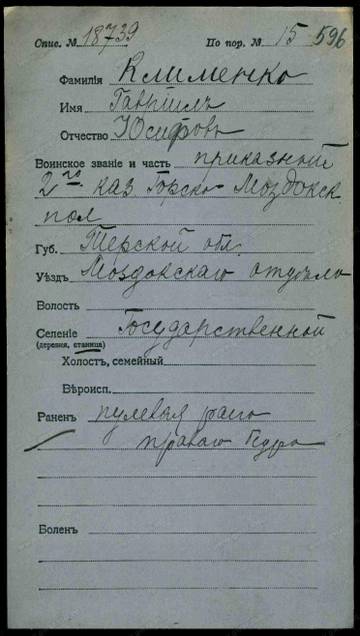 Спис. № 18739 По пор. № 15 596
Фамилія Клименко
Имя Гавріилъ
Отчество Іосифовъ
Воинское званіе и часть приказный
2го каз. Горско Моздокск
пол
Губ. Терской обл.
Уѣздъ Моздокскаго отдѣла
Волость
Селеніе Государственной
(деревня, станица)
Холостъ, семейный
Вѣроисп.
Раненъ пулевая рана
праваго бедра
Боленъ